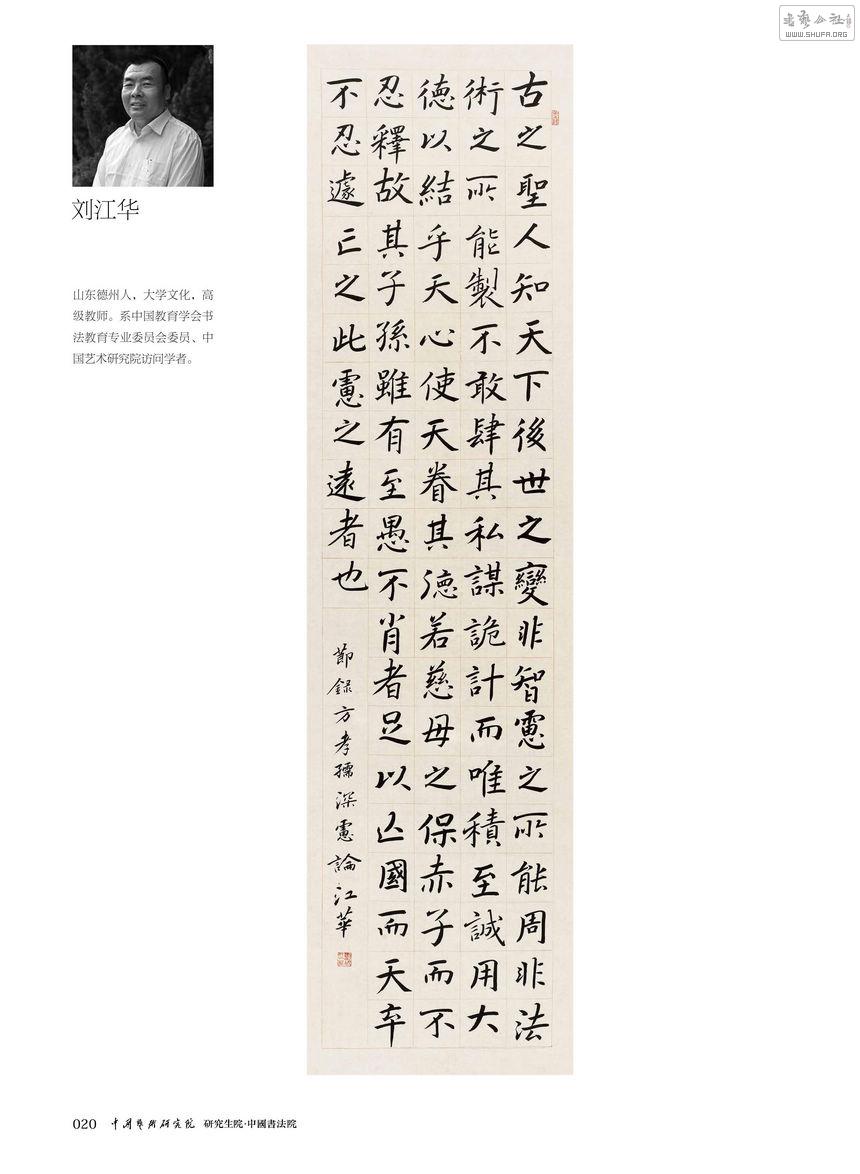 書藝公社
WWW.SHUFA.ORG
刘江华
山东德州人，大学文化，高
级教师。系中国教育学会书
法教育专业委员会委员、中
国艺术研究院访问学者。
古之聖人知天下後世之變非智慮之所能周非法
術之所能製不敢肆其私謀詭計而唯積至誠用大
德以結乎天心使天眷其德若慈母之保赤子而不
忍釋故其子孫雖有至愚不肖者足以亡國而天卒
不忍遽亡之此慮之遠者也
節録方孝孺深慮論江華
020 中国藝術研究院 研究生院·中國書法院